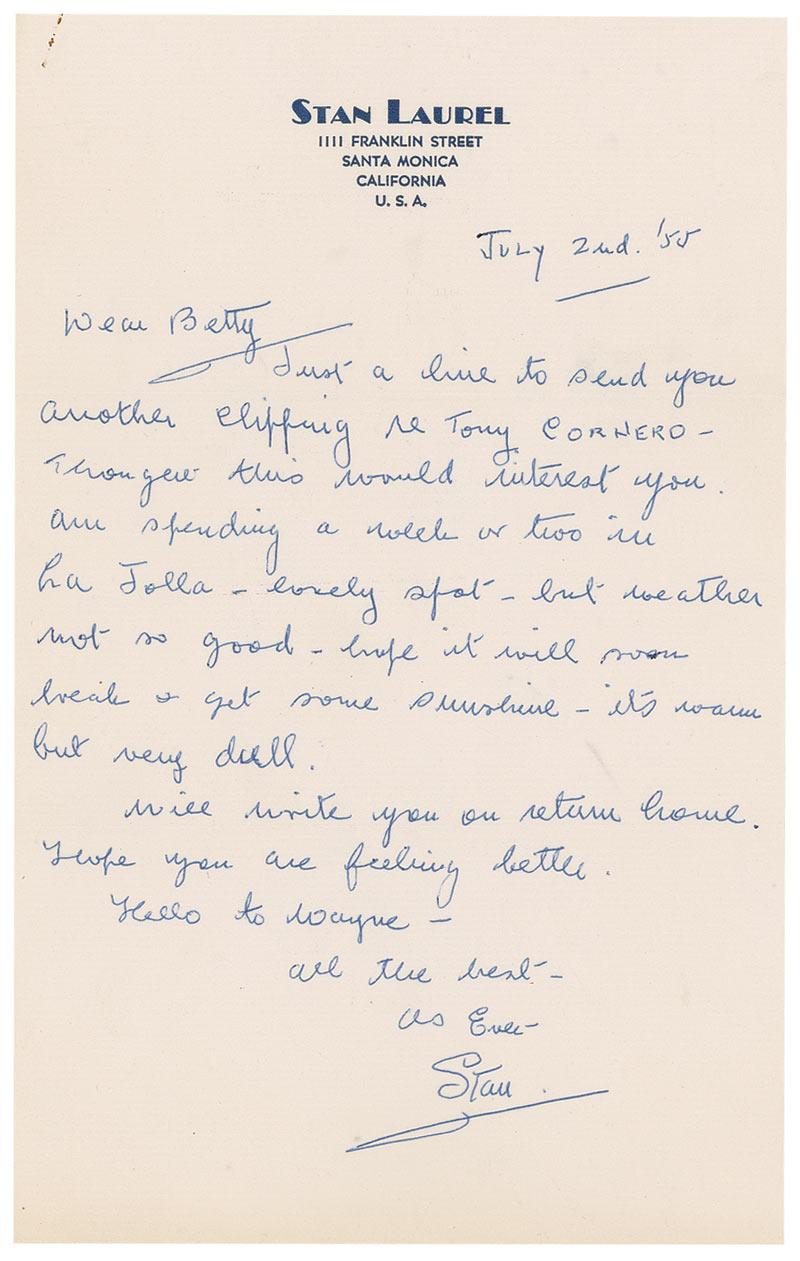 STAN LAUREL
1111 FRANKLIN STREET
SANTA MONICA
CALIFORNIA
U. S. A.
JULY 2nd. '55
Dear Betty
Just a line to send you
another clipping re Tony CORNERO -
Thought this would interest you.
am spending a week or two in
La Jolla - lovely spot - but weather
not so good - hope it will soon
break & get some sunshine - it's warm
but very dull.
Will write you on return home.
Hope you are feeling better.
Hello to Wayne -
all the best -
as Ever -
Stan.